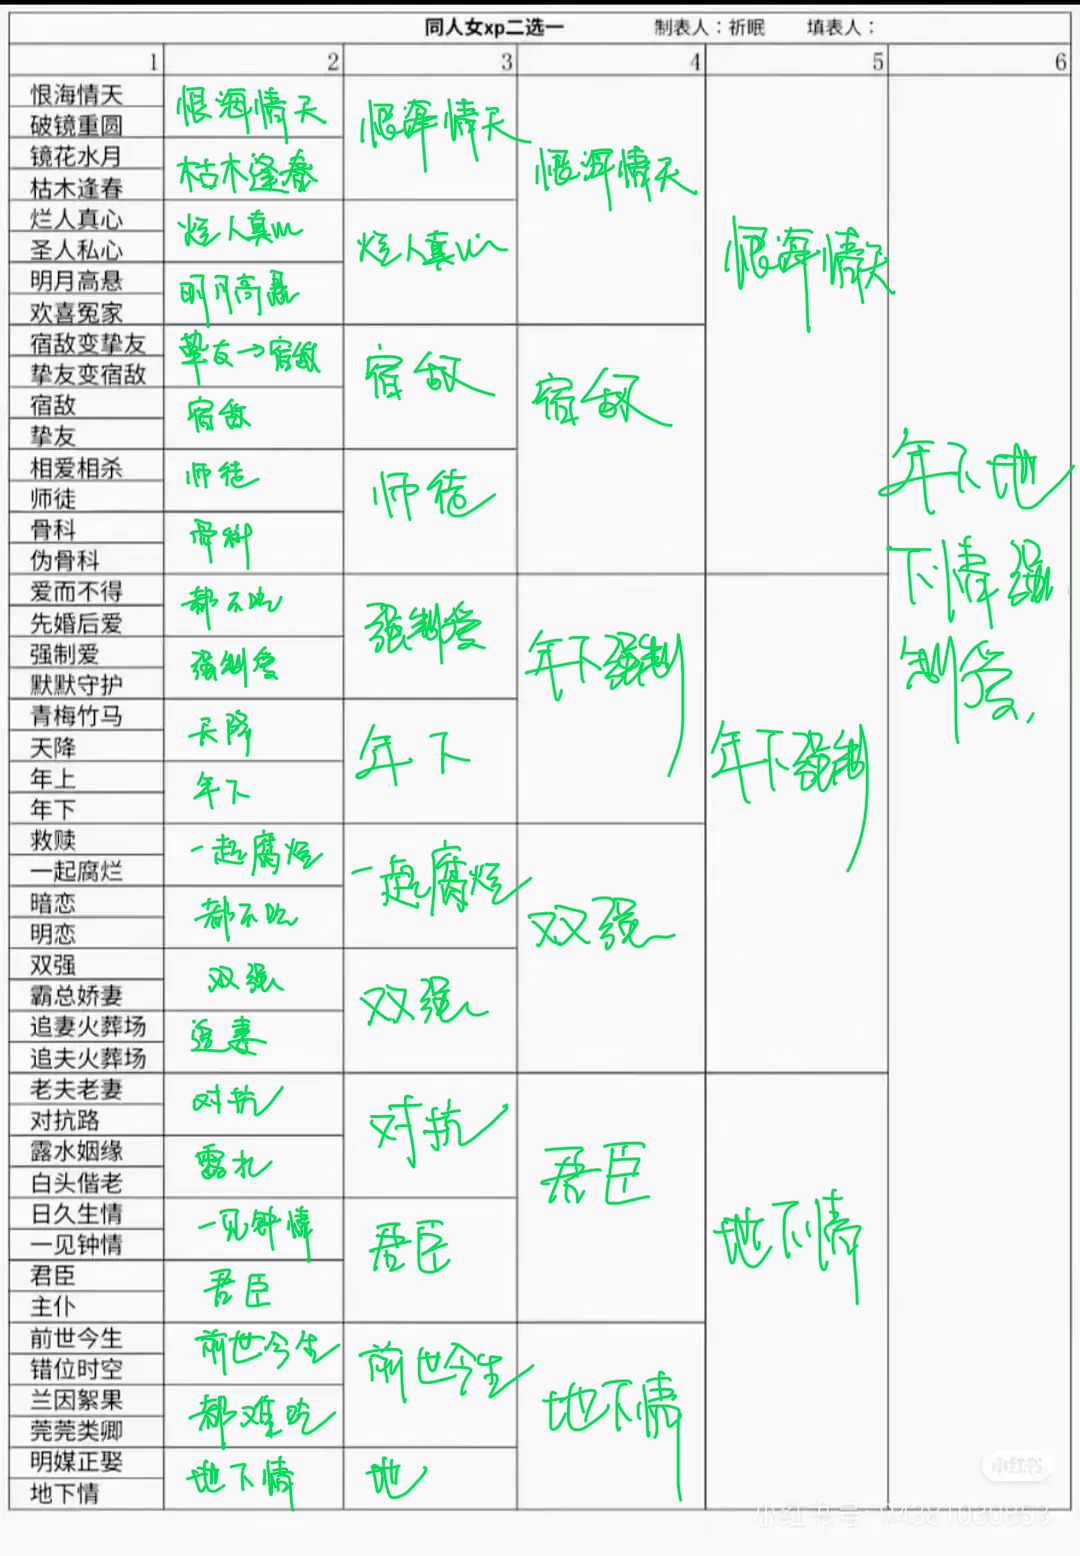 同人女xp二选一 制表人：祈眠 填表人：
1 2 3 4 5 6
恨海情天
破镜重圆
镜花水月
枯木逢春
烂人真心
圣人私心
明月高悬
欢喜冤家
宿敌变挚友
挚友变宿敌
宿敌
挚友
相爱相杀
师徒
骨科
伪骨科
爱而不得
先婚后爱
强制爱
默默守护
青梅竹马
天降
年上
年下
救赎
一起腐烂
暗恋
明恋
双强
霸总娇妻
追妻火葬场
追夫火葬场
老夫老妻
对抗路
露水姻缘
白头偕老
日久生情
一见钟情
君臣
主仆
前世今生
错位时空
兰因絮果
莞莞类卿
明媒正娶
地下情
恨海情天
枯木逢春
烂人真心
明月高悬
挚友→宿敌
宿敌
师徒
骨科
都不吃
强制爱
天降
年下
一起腐烂
都不吃
双强
追妻
对抗
露水
一见钟情
君臣
前世今生
都难吃
地下情
恨海情天
烂人真心
宿敌
师徒
强制爱
年下
一起腐烂
双强
对抗
君臣
前世今生
地
恨海情天
宿敌
年下强制
双强
君臣
地下情
恨海情天
年下强制
地下情
年下地
下情强
制爱
小红书